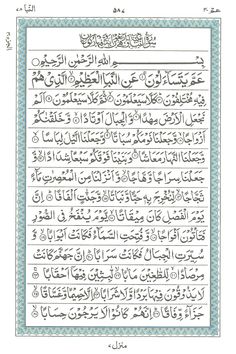 عم ٣٠ ٥٨٧ النبا ٧٨
بِسْمِ اللهِ الرَّحْمٰنِ الرَّحِيْمِ
عَمَّ يَتَسَآءَلُوْنَ عَنِ النَّبَاِ الْعَظِيْمِ الَّذِىْ هُمْ
فِيْهِ مُخْتَلِفُوْنَ كَلَّا سَيَعْلَمُوْنَ ثُمَّ كَلَّا سَيَعْلَمُوْنَ اَلَمْ
نَجْعَلِ الْاَرْضَ مِهٰدًا وَّالْجِبَالَ اَوْتَادًا وَّخَلَقْنٰكُمْ
اَزْوَاجًا وَّجَعَلْنَا نَوْمَكُمْ سُبَاتًا وَّجَعَلْنَا الَّيْلَ لِبَاسًا
وَّجَعَلْنَا النَّهَارَ مَعَاشًا وَّبَنَيْنَا فَوْقَكُمْ سَبْعًا شِدَادًا
وَّجَعَلْنَا سِرَاجًا وَّهَّاجًا وَّاَنْزَلْنَا مِنَ الْمُعْصِرٰتِ مَآءً
ثَجَّاجًا لِّنُخْرِجَ بِهٖ حَبًّا وَّنَبَاتًا وَّجَنّٰتٍ اَلْفَافًا اِنَّ
يَوْمَ الْفَصْلِ كَانَ مِيْقَاتًا يَّوْمَ يُنْفَخُ فِى الصُّوْرِ
فَتَاْتُوْنَ اَفْوَاجًا وَّفُتِحَتِ السَّمَآءُ فَكَانَتْ اَبْوَابًا
وَّسُيِّرَتِ الْجِبَالُ فَكَانَتْ سَرَابًا اِنَّ جَهَنَّمَ كَانَتْ
مِرْصَادًا لِّلطّٰغِيْنَ مَاٰبًا لّٰبِثِيْنَ فِيْهَآ اَحْقَابًا
لَا يَذُوْقُوْنَ فِيْهَا بَرْدًا وَّلَا شَرَابًا اِلَّا حَمِيْمًا وَّغَسَّاقًا
جَزَآءً وِّفَاقًا اِنَّهُمْ كَانُوْا لَا يَرْجُوْنَ حِسَابًا
منزل ٧